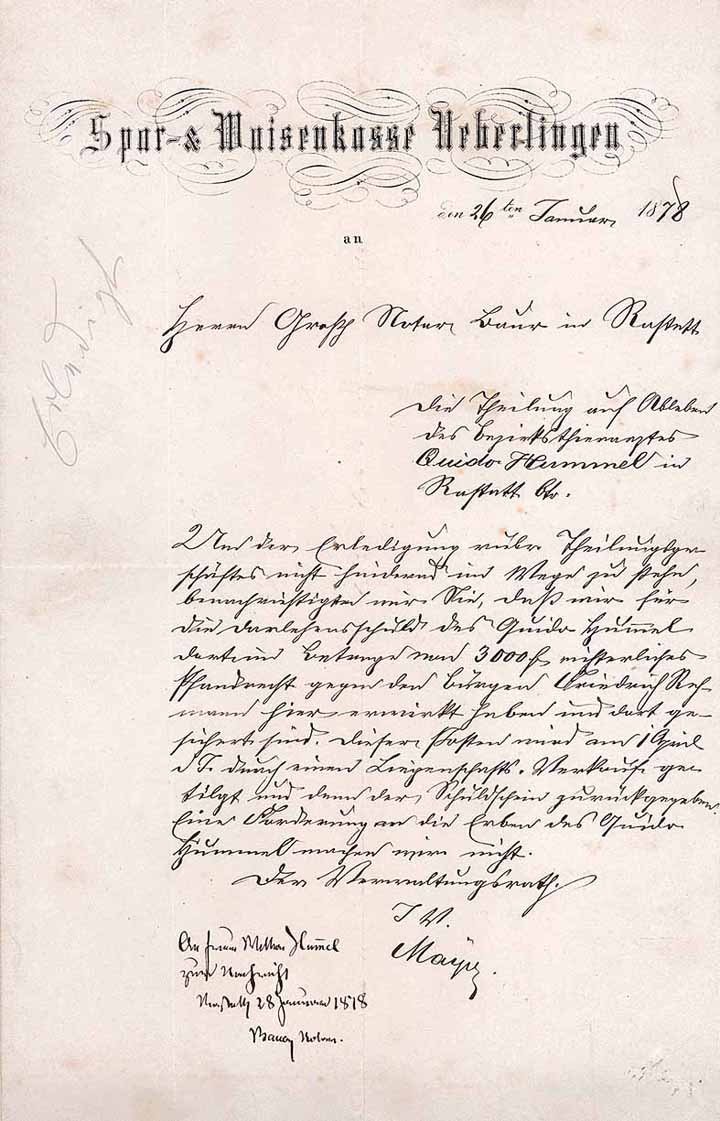 Spar-& Waisenkasse Ueberlingen
den 26ten Januar 1878
an
Erledigt
Herrn Großh Notar Baur in Rastatt
Die Theilung auf Ableben
des Bezirksthierarztes
Guido Hummel in
Rastatt btr.
Um der Erledigung rubr. Theilungsge-
schäftes nicht hindernd im Wege zu stehen,
benachrichtigen wir Sie, daß wir für
die Darlehensschuld des Guido Hummel
dort im Betrage von 3000 f. richterliches
Pfandrecht gegen den Bürgen Friedrich Reh-
mann hier erwirkt haben und dort ge-
sichert sind. Dieser Posten wird am 1 April
d J. durch einen Liegenschafts-Verkauf ge-
tilgt und dann der Schuldschein zurückgegeben.
Eine Forderung an die Erben des Guido
Hummel machen wir nicht.
Der Verwaltungsrath.
I V.
An Frau Hummel
zur Nachricht
Rastatt 28 Januar 1878
Baur Notar.